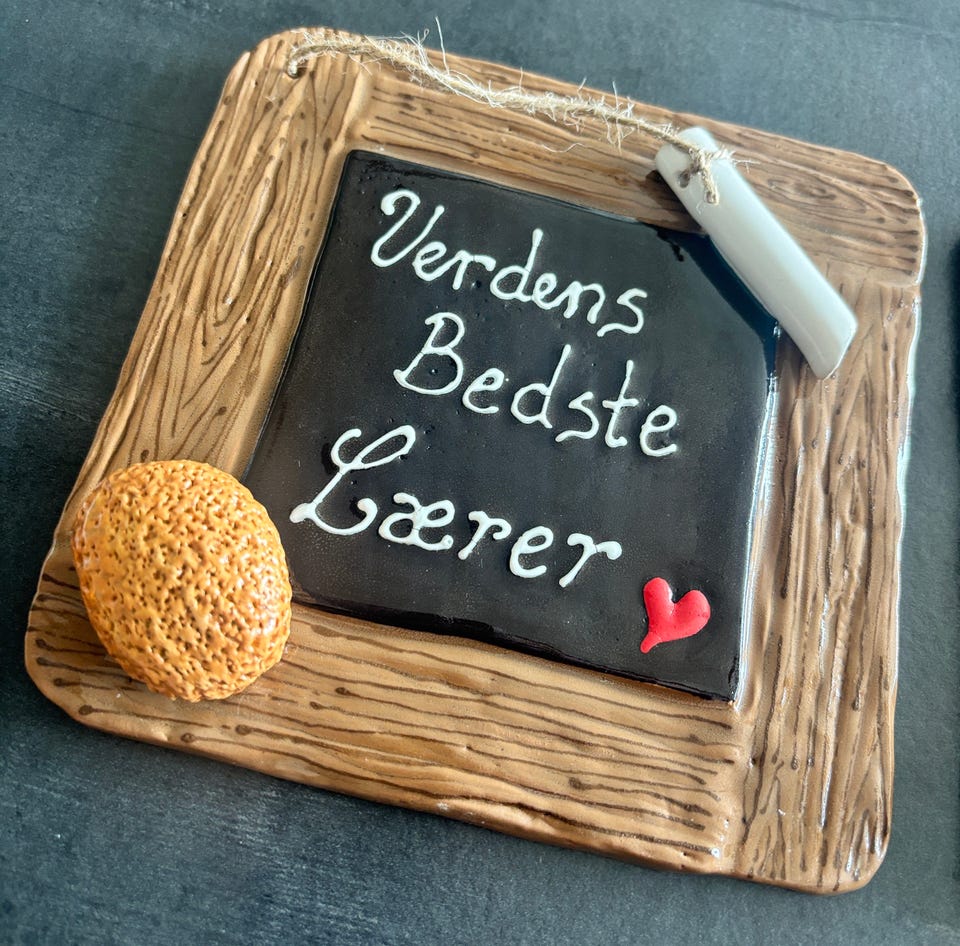 Verdens
Bedste
Lærer